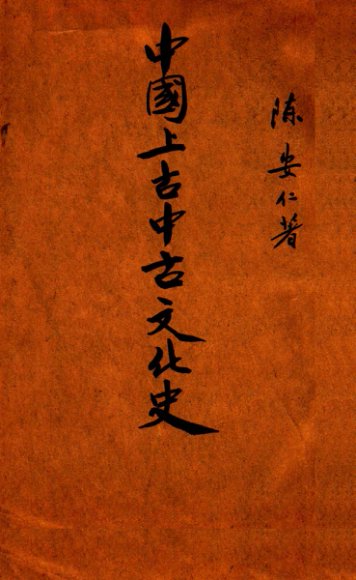 陈安仁著
中國上古中古文化史